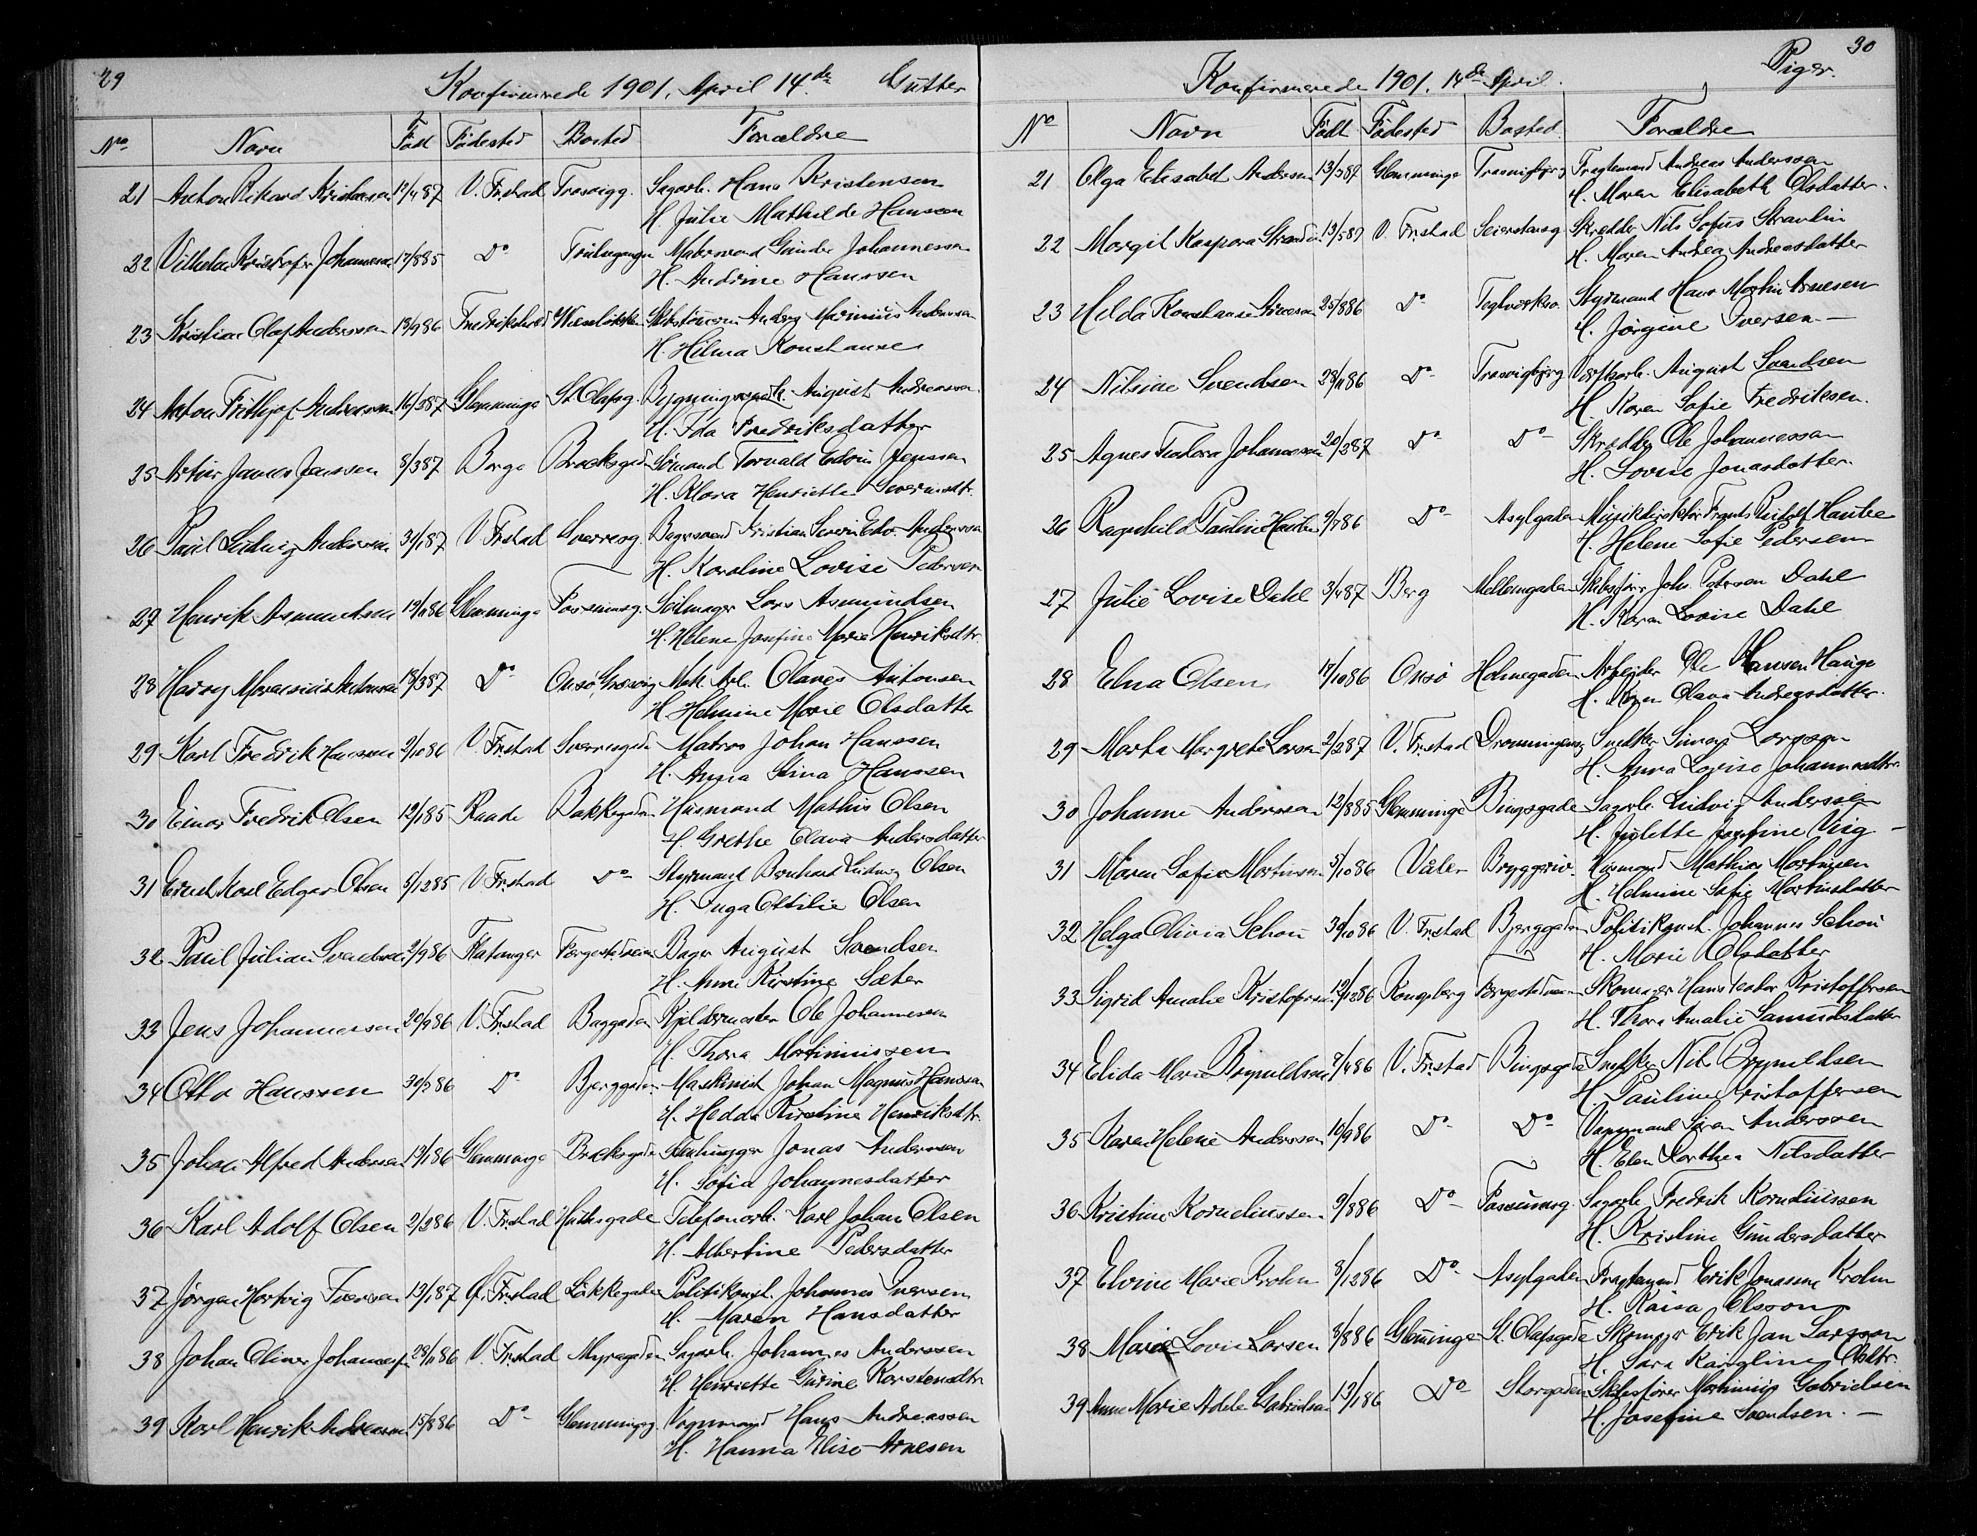 29
Konfirmerede 1901, April 14de Gutter
No Navn Født Fødested Bosted Forældre
21 Anton Rikard Kristensen 17/4 87 V. Frstad Trosvigg. Sagarb. Hans Kristensen
H. Julie Mathilde Hanssen
22 Vilhelm Kristofer Johannesen 17/8 85 Do Matersvend Gunder Johannessen
H. Andrine Hanssen
23 Kristian Olaf Anderssen 13/9 86 Anders Marinius Anderssen
H. Hilma Konstanse
24 Anton Frithjof Andreassen 16/2 87 Glemminge St. Olafsg. Bygningssnedk. August Andreassen
H. Ida Fredriksdatter
25 Artur James Jenssen 8/3 87 Borge Brochsgaden Sømand Torvald Edvin Jenssen
H. Klara Henriette Sverinsdtr.
26 Paul Ludvig Anderssen 31/1 87 V. Frstad Sverresg. Bagersvend Kristian Severin Edv. Anderssen
H. Karoline Lovise Pedersen
27 Henrik Asmundsen 19/1 86 Glemminge Fossumsg. Seilmager Lars Asmundsen
H. Helene Josefine Marie Henriksdtr.
28 Harry Marensius Antonsen 18/3 87 Do Onsø, Græsvig Mek. Arb. Olaves Antonsen
H. Helmine Marie Olsdatter
29 Karl Fredrik Hanssen 2/10 86 V. Frstad Sverresgaden Matros Johan Hanssen
H. Anna Stina Hanssen
30 Einar Fredrik Olsen 19/1 85 Raade Bakkegaden Husmand Mathis Olsen
H. Grethe Olava Andersdatter
31 Ernst Karl Edgar Olsen 8/12 85 V. Frstad Do Styrmand Bernhard Ludvig Olsen
H. Inga Ottilie Olsen
32 Paul Julian Svendsen 2/9 86 Flatanger Færgestedsveien Bager August Svendsen
H. Anne Kirstine Sæter
33 Jens Johannessen 20/9 86 V. Frstad Baggaden Kjeldermester Ole Johannesen
H. Thora Martinuissen
34 Otto Hanssen 30/3 86 Do Bjerggaden Maskinist Johan Magnus Hanssen
H. Hedda Kirstine Henriksdtr.
35 Johan Alfred Andersen 19/1 86 Glemminge Brochsgaden Stenhugger Jonas Anderssen
H. Sofia Johannesdatter
36 Karl Adolf Olsen 2/2 86 V. Frstad Huthsgade Telefonarb. Karl Johan Olsen
H. Albertine Pedersdatter
37 Jørgen Hertvig Iversen 13/1 87 G. Frstad Løkkegaden Politikonst. Johannes Iversen
H. Maren Hansdatter
38 Johan Oliver Johanness. 28/11 86 V. Frstad Myragaden Sagarb. Johannes Anderssen
H. Henriette Gurine Karstensdtr
39 Karl Henrik Andreassen 15/8 86 Do Glemmingeg. Vognmand Hans Andreassen
H. Hanna Elise Arnesen
30
Konfirmerede 1901. 14de April. Piger.
No Navn Født Fødested Bosted Forældre
21 Olga Elisabet Andersen 13/3 87 Glemminge Trosvigbjerg Fragtemand Andreas Anderssen
H. Maren Elisabeth Olsdatter.
22 Margit Kaspara Strandin 19/3 87 V. Frstad Seierstensg Skrædder Nils Sofus Strandin
H. Maren Andrea Andreasdatter
23 Helda Konstanse Arnesen 25/8 86 Do Teglverksv. Styrmand Hans Martin Arnesen
H. Jørgine Iversen —
24 Nilsine Svendsen 28/11 86 Do Trosvigbjerg Værftsarb. August Svendsen
H. Karen Sofie Fredriksen.
25 Agnes Teodora Johannessen 20/2 87 Do Do Skrædder Ole Johannessen
H. Lovise Jonasdatter.
26 Ragnhild Pauline Hauke 9/7 86 Do Asylgaden Musikdirektør Frants Rudolf Hauke
H. Helene Sofie Pedersen
27 Julie Lovise Dahl 3/4 87 Berg Mellemgaden Skibsfører Joh. Petersen Dahl
H. Karen Lovise Dahl
28 Elna Olsen 17/10 86 Onsø Holmegaden Arbejder Ole Hansen Hauge
H. Karen Olava Andreasdatter.
29 Marta Margrete Larsen 2/2 87 V. Frstad Dronningensg Snekker Simon Larssen
H. Anna Lovise Johannesdtr.
30 Johanne Anderssen 12/8 85 Glemminge Bingsgade Sagarb. Ludvig Anderssen
H. Julette Josefine Vig —
31 Maren Sofie Martinsen 5/10 86 Våler Bryggeriv. Husmand Mathias Martinsen
H. Helmine Sofie Martinsdatter
32 Helga Olivia Schou 30/10 86 V. Frstad Bjerggaden Politikonst. Johannes Schou
H. Marie Olsdatter
33 Sigrid Amalie Kristofersen 19/12 86 Kongsberg Færgestedsveien Skomager Hans Teodor Kristoffersen
H. Thora Amalie Samuelsdatter
34 Elida Marie Brynildsen 7/4 86 V. Frstad Bingsgade Snekker Nils Brynildsen
H. Pauline Kristoffersen
35 Karen Helene Anderssen 10/9 86 Do Do Vognmand Søren Anderssen
H. Elen Dorthea Nilsdatter
36 Kristine Korneliussen 9/8 86 Do Fossumsg. Sagarb. Fredrik Korneliussen
H. Kristine Gundersdatter
37 Elvine Marie Krohn 8/12 86 Do Asylgaden Fragtemand Erik Jonassen Krohn
H. Kaisa Olsson
38 Marie Lovise Larsen 8/8 86 Gleminge St. Olafsgade Skomager Erik Jan Larsson
H. Sara Karoline Olsdtr.
39 Anne Marie Adele Gabrielsen 13/1 86 Do Storgaden Skibsfører Martinius Gabrielsen
H. Josefine Svendsen. —